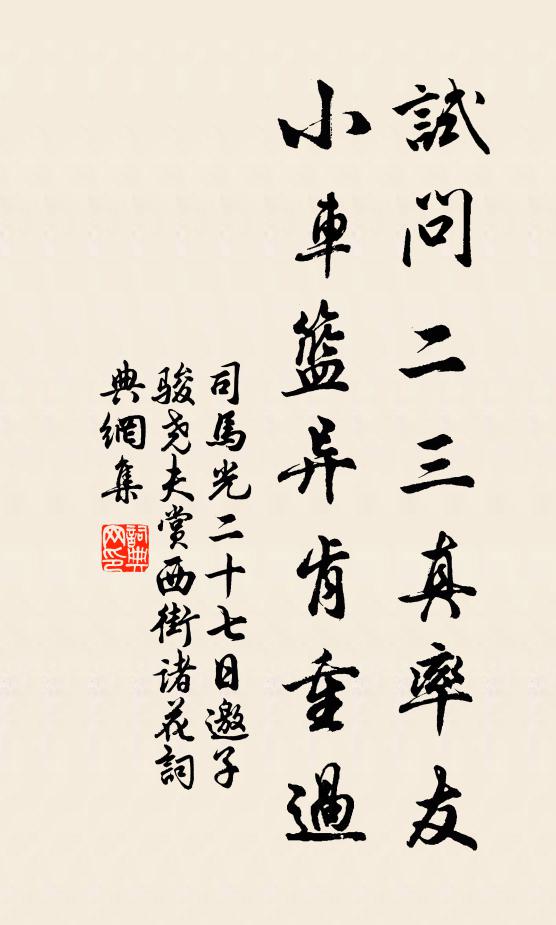 試問二三真率友
小車籃异肯重過
司馬光二十七日邀子
駿尧夫賞西街諸花詞
典網集
詞典
网印